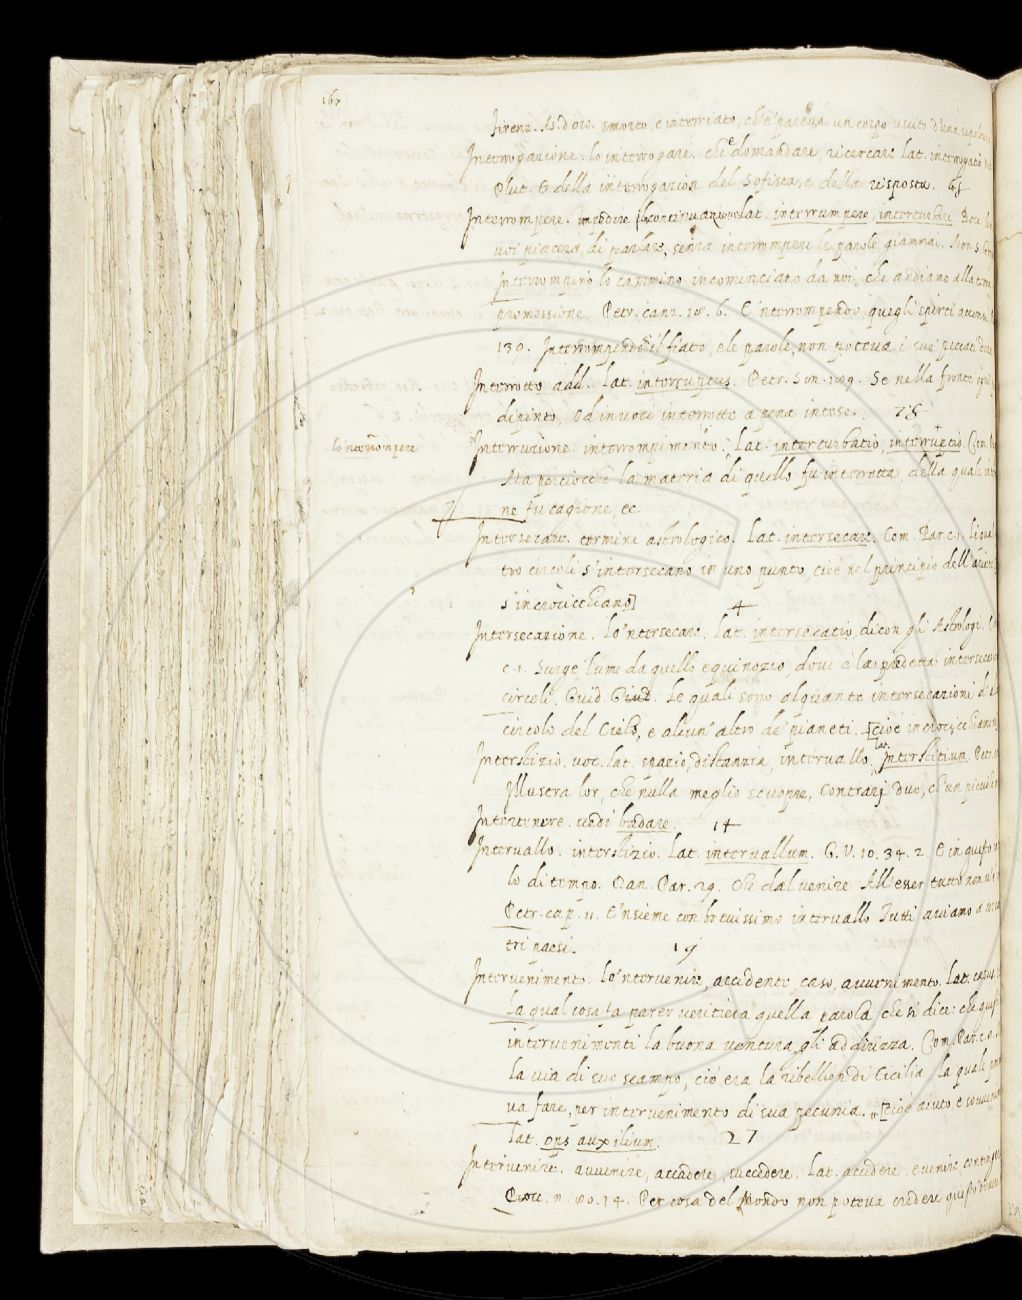 167
firenz. As. d'oro. smorto, e interriato, ch'e' pareva un corpo uscito d'una
Interrogazione. lo interrogare. che è domandare, ricercare lat. interrogatio
Plut. E della interrogazion del Sofista, e della risposta. 65
Interrompere. impedire il continuazione lat. interrumpere, interturbare Bocc.
voi piacerà di parlare, senza interrompere le parole giammai. Nov. 5.
Interromperò lo cammino incominciato da noi, che andiamo alla terra
promessione. Petr. canz. 18. 6. E 'nterrompendo quegli spirti accensi
139. Interrompendo il fiato, e le parole, non poteva i suoi peccati dire
Interrotto add. lat. interruptus. Petr. Son. 189. Se nella fronte
dipinto, Od in voci interrotte a pena intese. 75
lo 'nterrompere
Interruzione. interrompimento. Lat. interturbatio, interruptio Com.
Ma perciocchè la materia di quello fu interrotta, della quale
ne fu cagione, ec.
Intersecare. termine astrologico. Lat. intersecare. Com. Par. c. 1. li quattro
tro circoli s'intersecano in uno punto, cioè nel principio dell'ariete
s'incrocicchiano] 4
Intersecazione. Lo 'ntersecare. lat. intersecatio, dicon gli Astrologi.
c. 1. Surge lume da quello equinozio, dove è la predetta intersecazione
circoli. Guid. Giud. Le quali sono alquante intersecazioni d'
circolo del Cielo, e alcun' altro de' pianeti. [cioè incrocicchiamenti
Interstizio. voc. lat. spazio, distanzia, intervallo. Lat. interstitium. Petr.
Illustra lor, che nulla meglio scuopre, Contrarj duo, ch'un piccolo
Intertenere. vedi badare. 14
Intervallo. interstizio. Lat. intervallum. G. V. 10. 34. 2. E in questo
lo di tempo. Dan. Par. 29. Che dal venire All'esser tutto non è
Petr. cap. 11. E 'nsieme con brevissimo intervallo Tutti aviamo a
tri paesi. 19
Intervenimento. Lo 'ntervenire, accidente, caso, avvenimento. Lat. casus
La qual cosa fa parer veritiera quella parola che si dice: che
intervenimenti la buona ventura gli addirizza. Com. Par. c.
la via di suo scampo, ciò era la ribellion di Cicilia la quale
va fare, per intervenimento di sua pecunia. [cioè aiuto, e sovvenimento
lat. ops auxilium. 27
Intervenire. avvenire, accadere, succedere. Lat. accidere, evenire,
Bocc. n. 80. 14. Per cosa del Mondo non poteva credere